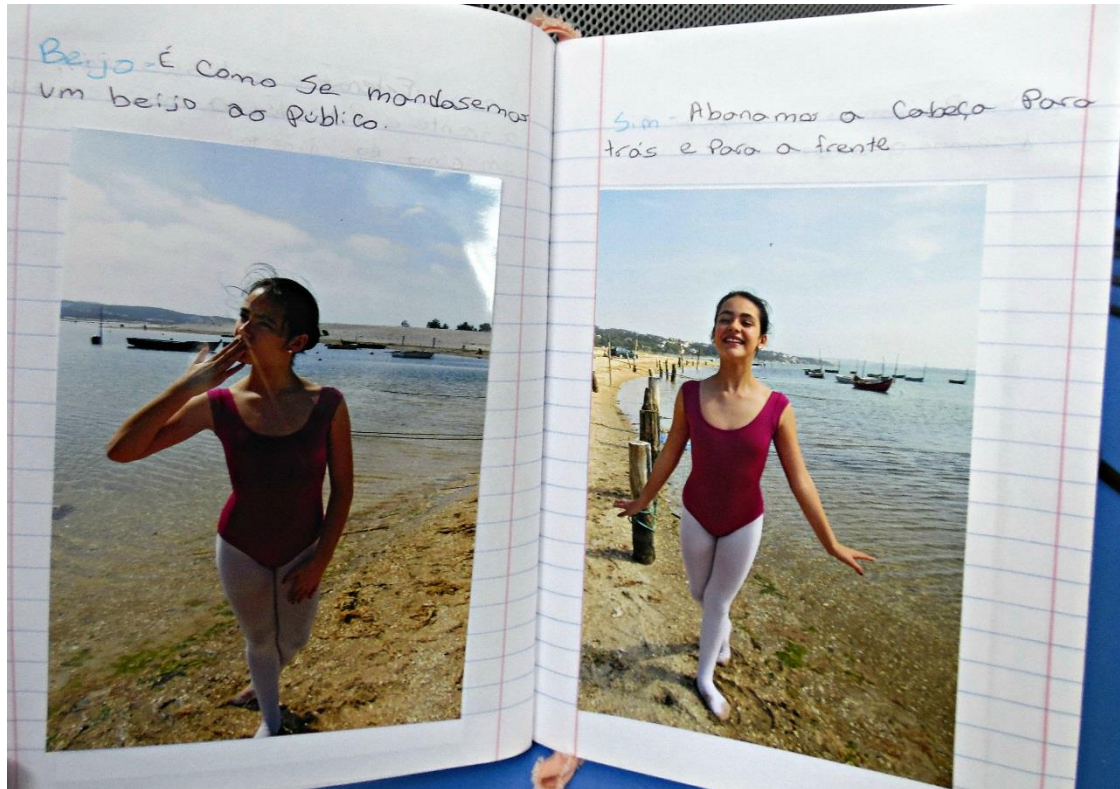 Beijo - É como se mandasemos
um beijo ao público.
Sim - Abanamos a Cabeça Para
trás e Para a frente